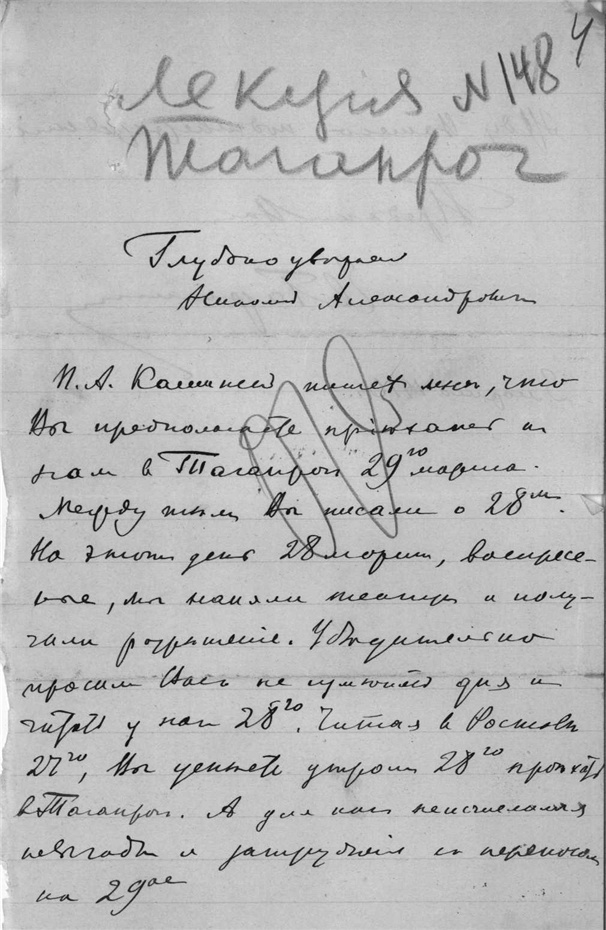 Лекция N 148 4
Таганрог
Глубоко уважаем
Николай Александрович
П. А. Калинский пишет мне, что
Вы предполагаете приехать к
нам в Таганрог 29го марта.
Между тем Вы писали о 28м.
На этот день 28 марта, воскресе-
нье, мы наняли театр и полу-
чили разрешение. Убедительно
просим Вас не изменять дня и
читать у нас 28го. Читая в Ростове
27го, Вы успеете утром 28го приехать
в Таганрог. А для нас неисчислимыя
невыгоды и затруднения с переносом
на 29ое